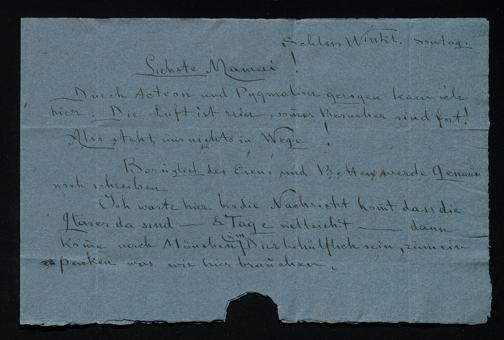 Schloss Winkl. Sontag.
Liebste Mamai!
Durch Acteon und Pygmalion gezogen kam ich
hier. Die Luft ist rein, Besucher sind fort!
Also steht uns nichts in Wege!
Bezüglich der und Betten werde Genau
noch schreiben
Ich warte hier bis die Nachricht kom̄t dass die
Gläser da sind — 8 Tage vielleicht — dann
kom̄e nach München um Dir behülflich sein, zum ein
packen was wir hier brauchen.